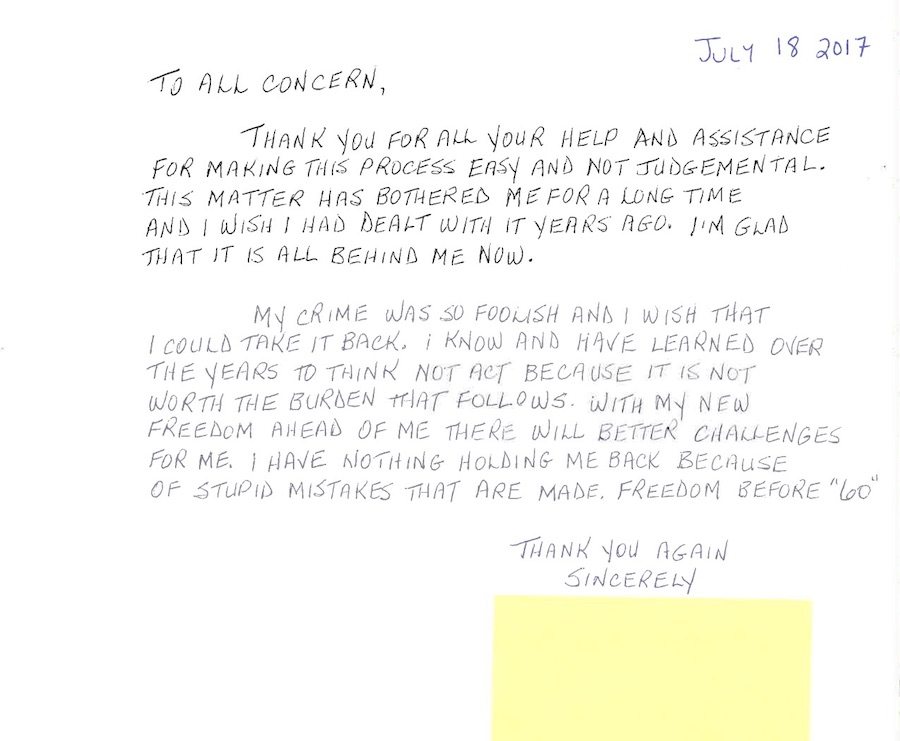 JULY 18 2017
TO ALL CONCERN,
THANK YOU FOR ALL YOUR HELP AND ASSISTANCE
FOR MAKING THIS PROCESS EASY AND NOT JUDGEMENTAL.
THIS MATTER HAS BOTHERED ME FOR A LONG TIME
AND I WISH I HAD DEALT WITH IT YEARS AGO. I'M GLAD
THAT IT IS ALL BEHIND ME NOW.
MY CRIME WAS SO FOOLISH AND I WISH THAT
I COULD TAKE IT BACK. i KNOW AND HAVE LEARNED OVER
THE YEARS TO THINK NOT ACT BECAUSE IT IS NOT
WORTH THE BURDEN THAT FOLLOWS. WITH MY NEW
FREEDOM AHEAD OF ME THERE WILL BETTER CHALLENGES
FOR ME. I HAVE NOTHING HOLDING ME BACK BECAUSE
OF STUPID MISTAKES THAT ARE MADE. FREEDOM BEFORE "60"
THANK YOU AGAIN
SINCERELY